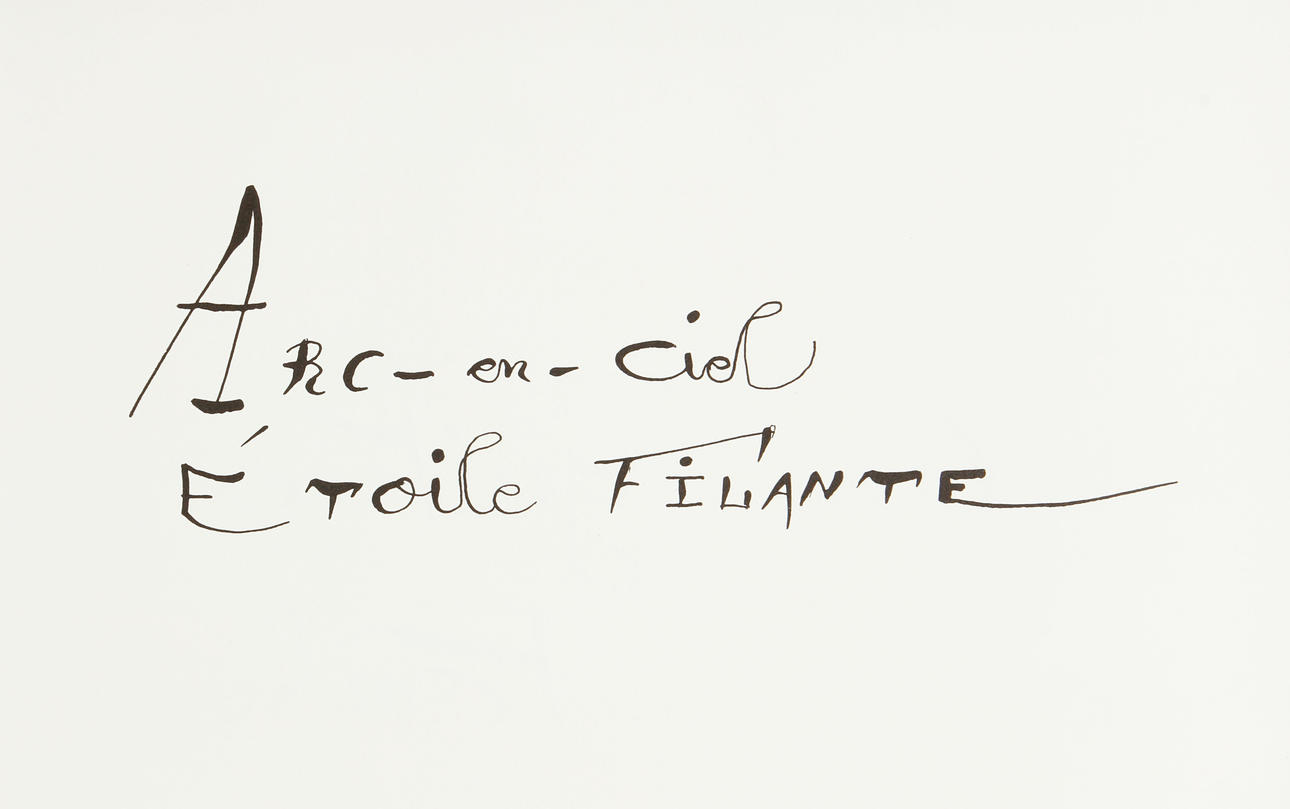 ARC-en-Ciel
ÉToile FiLANTE